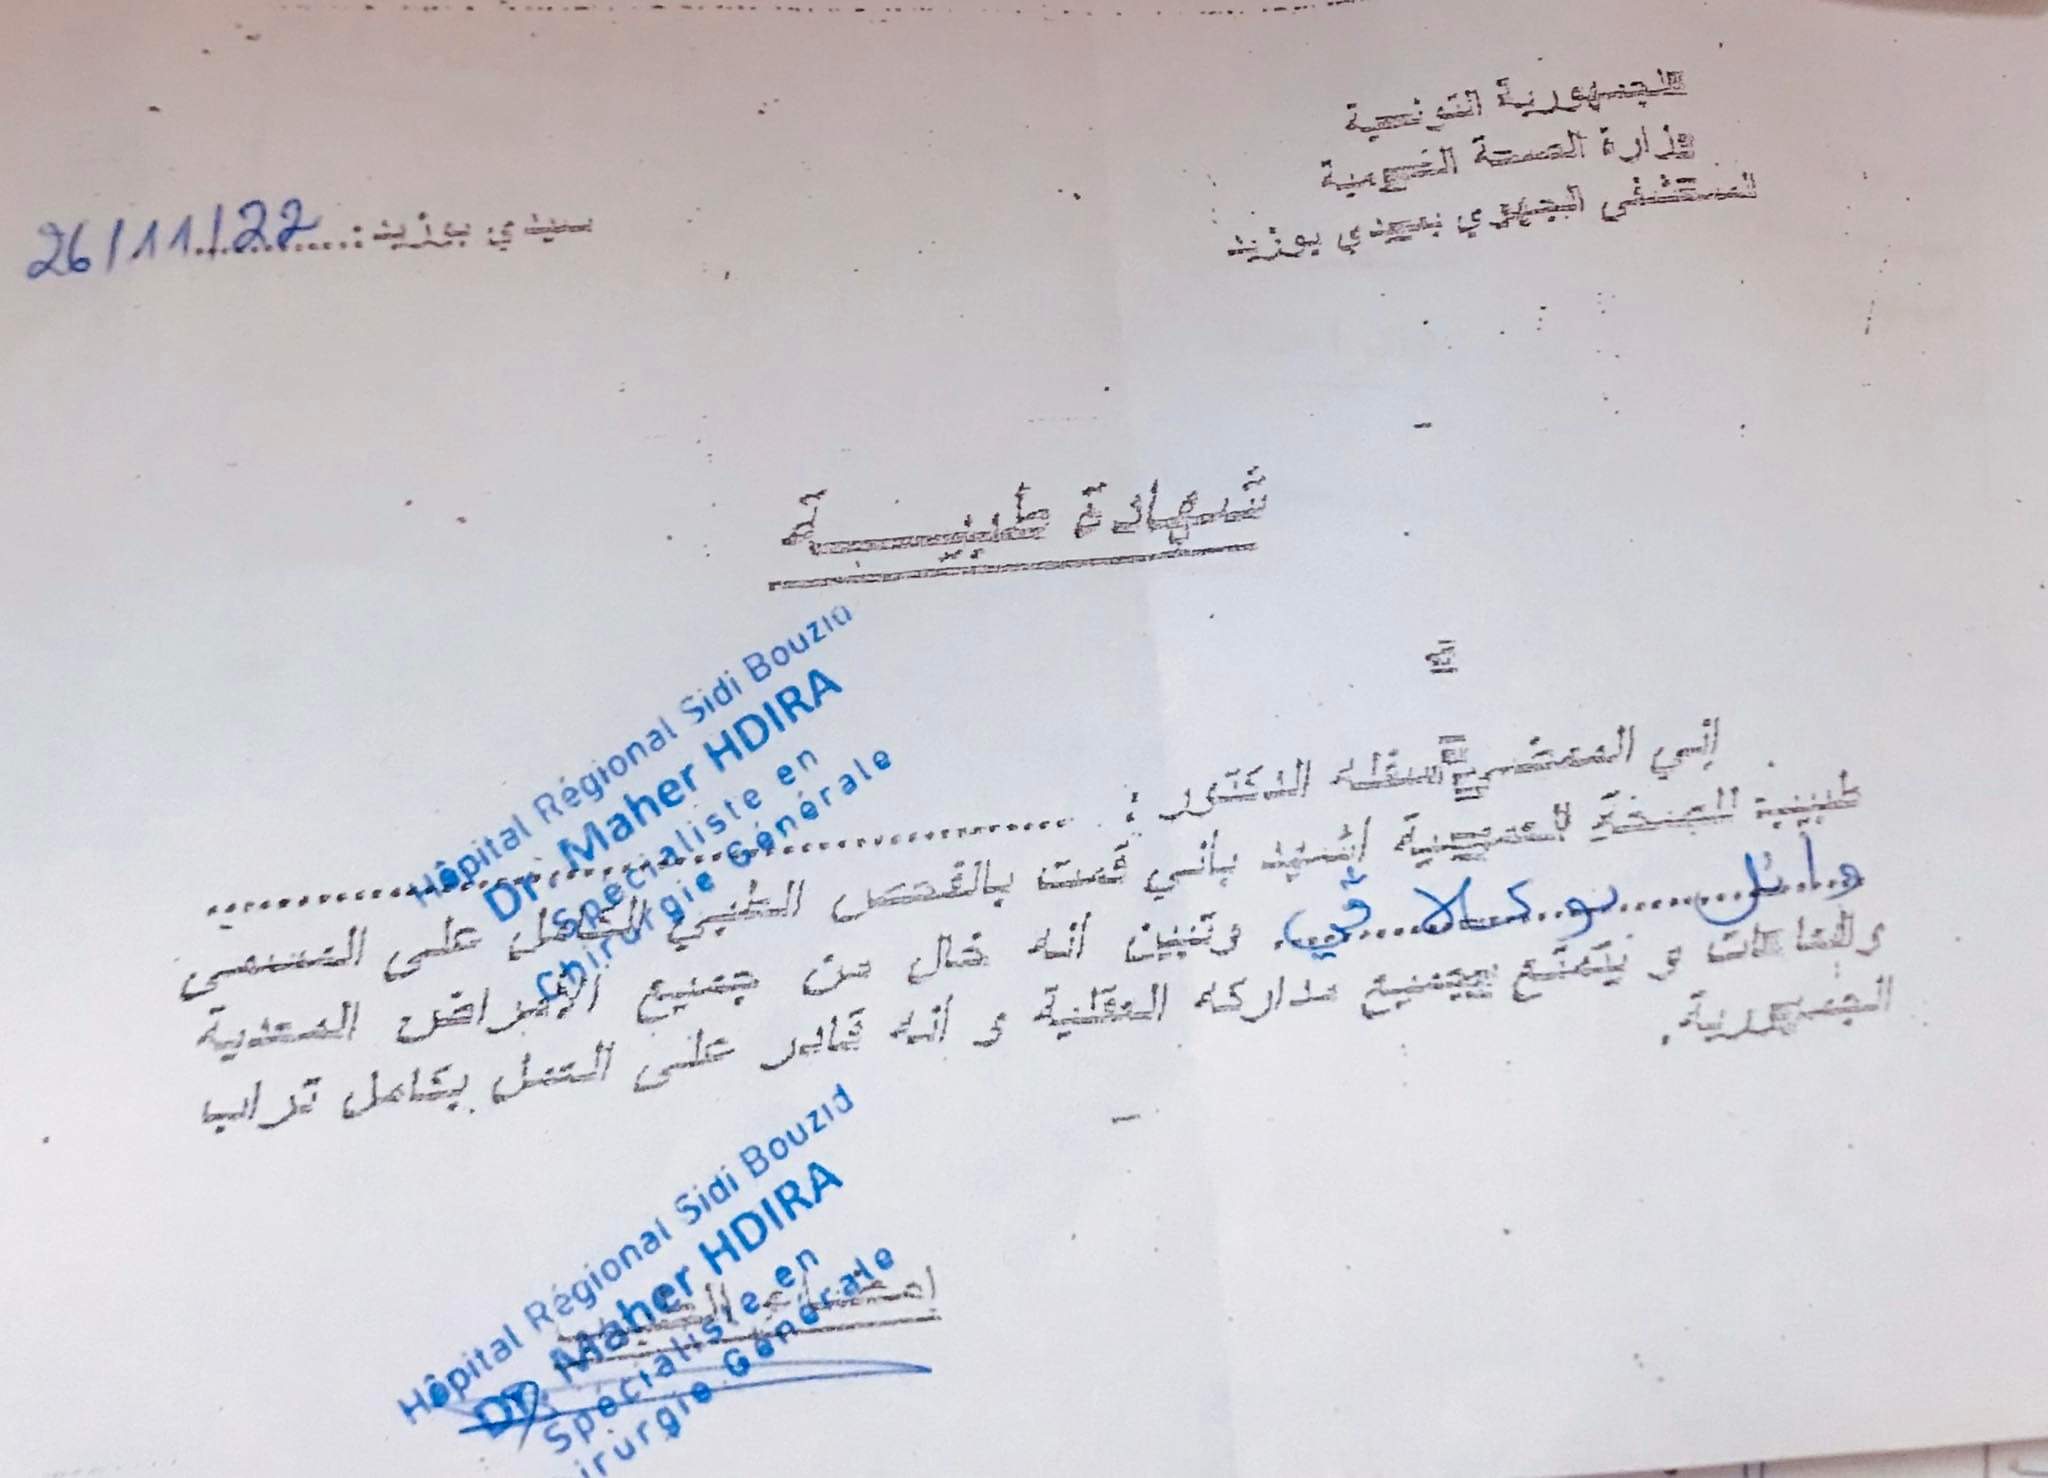 الجمهورية التونسية
وزارة الصحة العمومية
المستشفى الجهوي بسيدي بوزيد
سيدي بوزيد : 26/11/22
شهادة طبيبـــــة
إني الممضي أسفله الدكتور :
Hôpital Régional Sidi Bouzid
Dr. Maher HDIRA
Spécialiste en
Chirurgie Générale
طبيب الصحة العمومية اشهد باني قمت بالفحص الطبي الكامل على المسمى
وائل وتبين انه خال من جميع الأمراض المعدية
والعاهات و يتمتع بجميع مداركه العقلية و انه قادر على العمل بكامل تراب
الجمهورية.
إمضاء الطبيب
Hôpital Régional Sidi Bouzid
Dr. Maher HDIRA
Spécialiste en
irurgie Générale